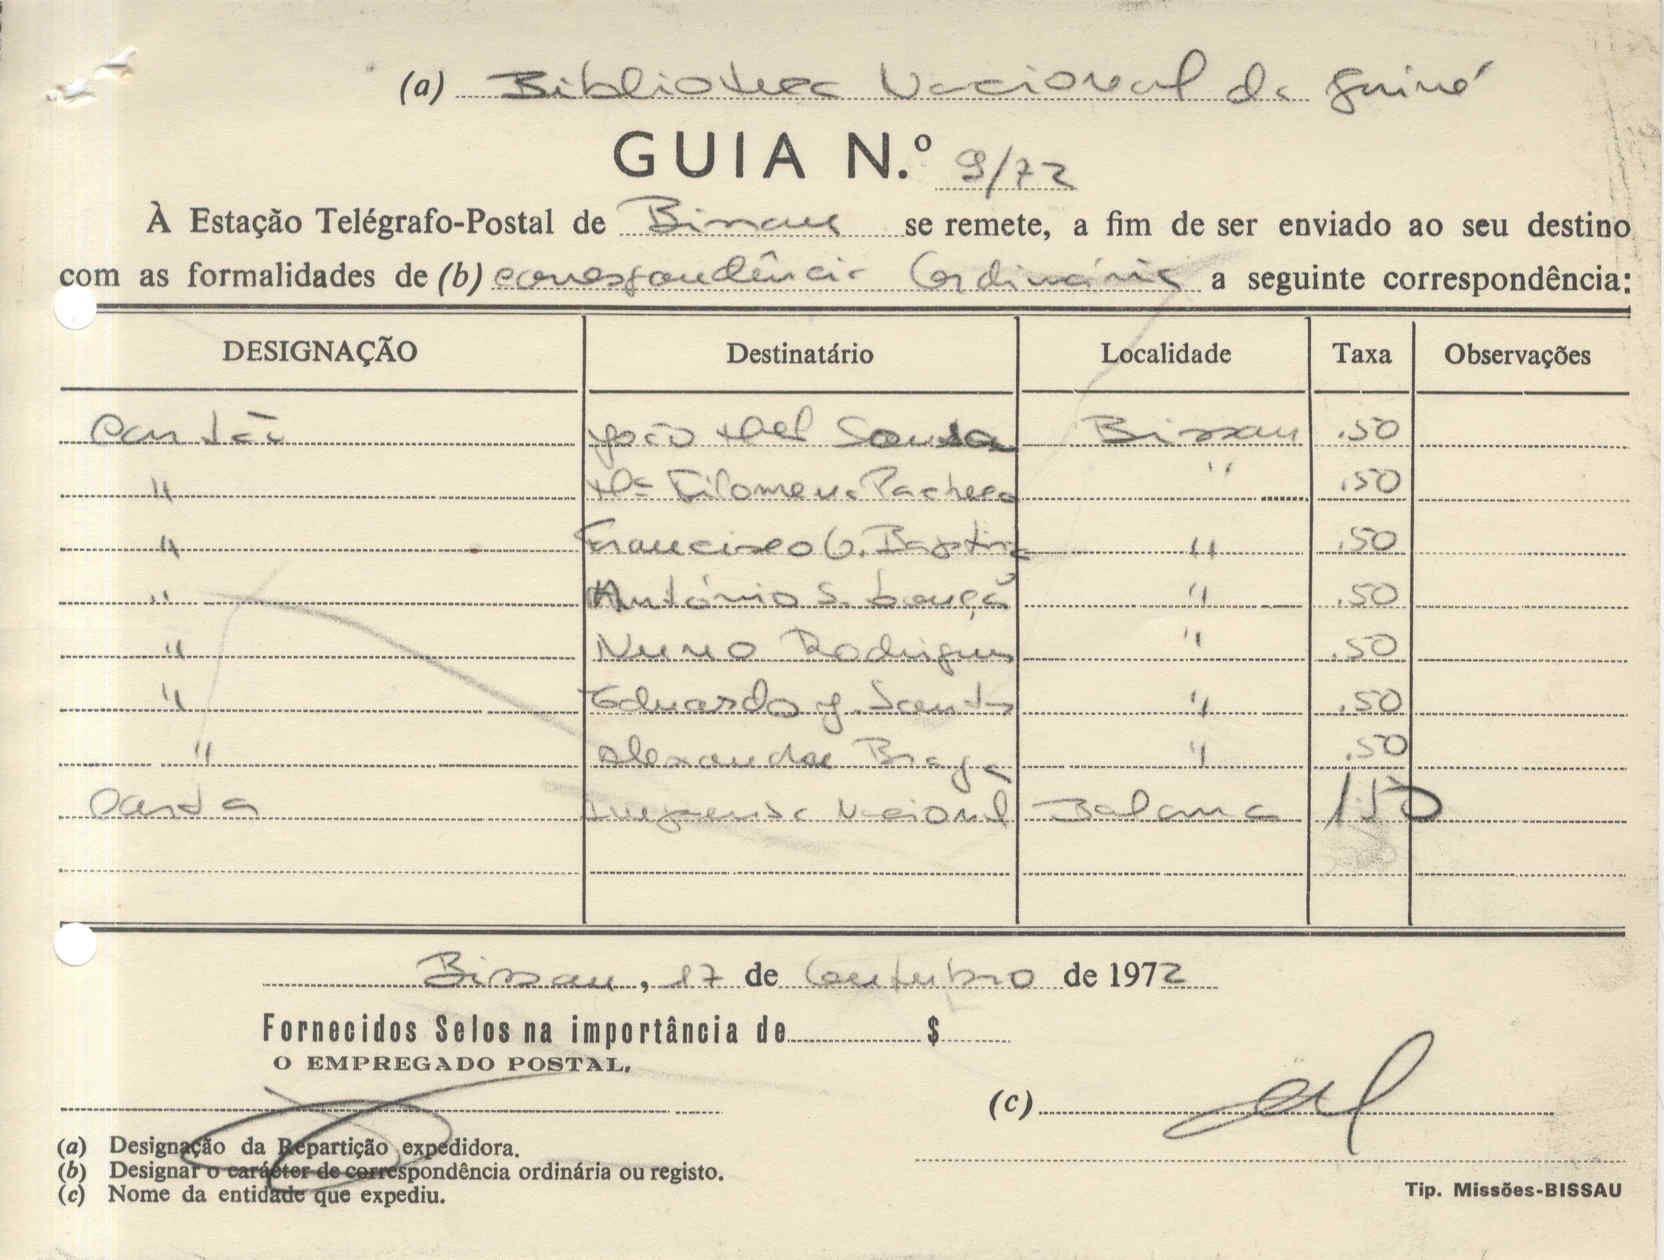 (a) Biblioteca Nacional da Guiné
GUIA N.º 9/72
À Estação Telégrafo-Postal de Bissau se remete, a fim de ser enviado ao seu destino
com as formalidades de (b) correspondência Ordinária a seguinte correspondência:
DESIGNAÇÃO Destinatário Localidade Taxa Observações
Cartão João Mel Sousa Bissau .50
" Mª Filomena Pacheco " .50
" Francisco O. Baptista " .50
" António S. Louçã " .50
" Nuno Rodrigues " .50
" Eduardo J. Santos " .50
" Alexandre Braga " .50
Carta Imprensa Nacional Bolama 1.50
Bissau, 17 de Outubro de 1972
Fornecidos Selos na importância de $
O EMPREGADO POSTAL,
(c)
(a) Designação da Repartição expedidora.
(b) Designar o carácter de correspondência ordinária ou registo.
(c) Nome da entidade que expediu.
Tip. Missões-BISSAU